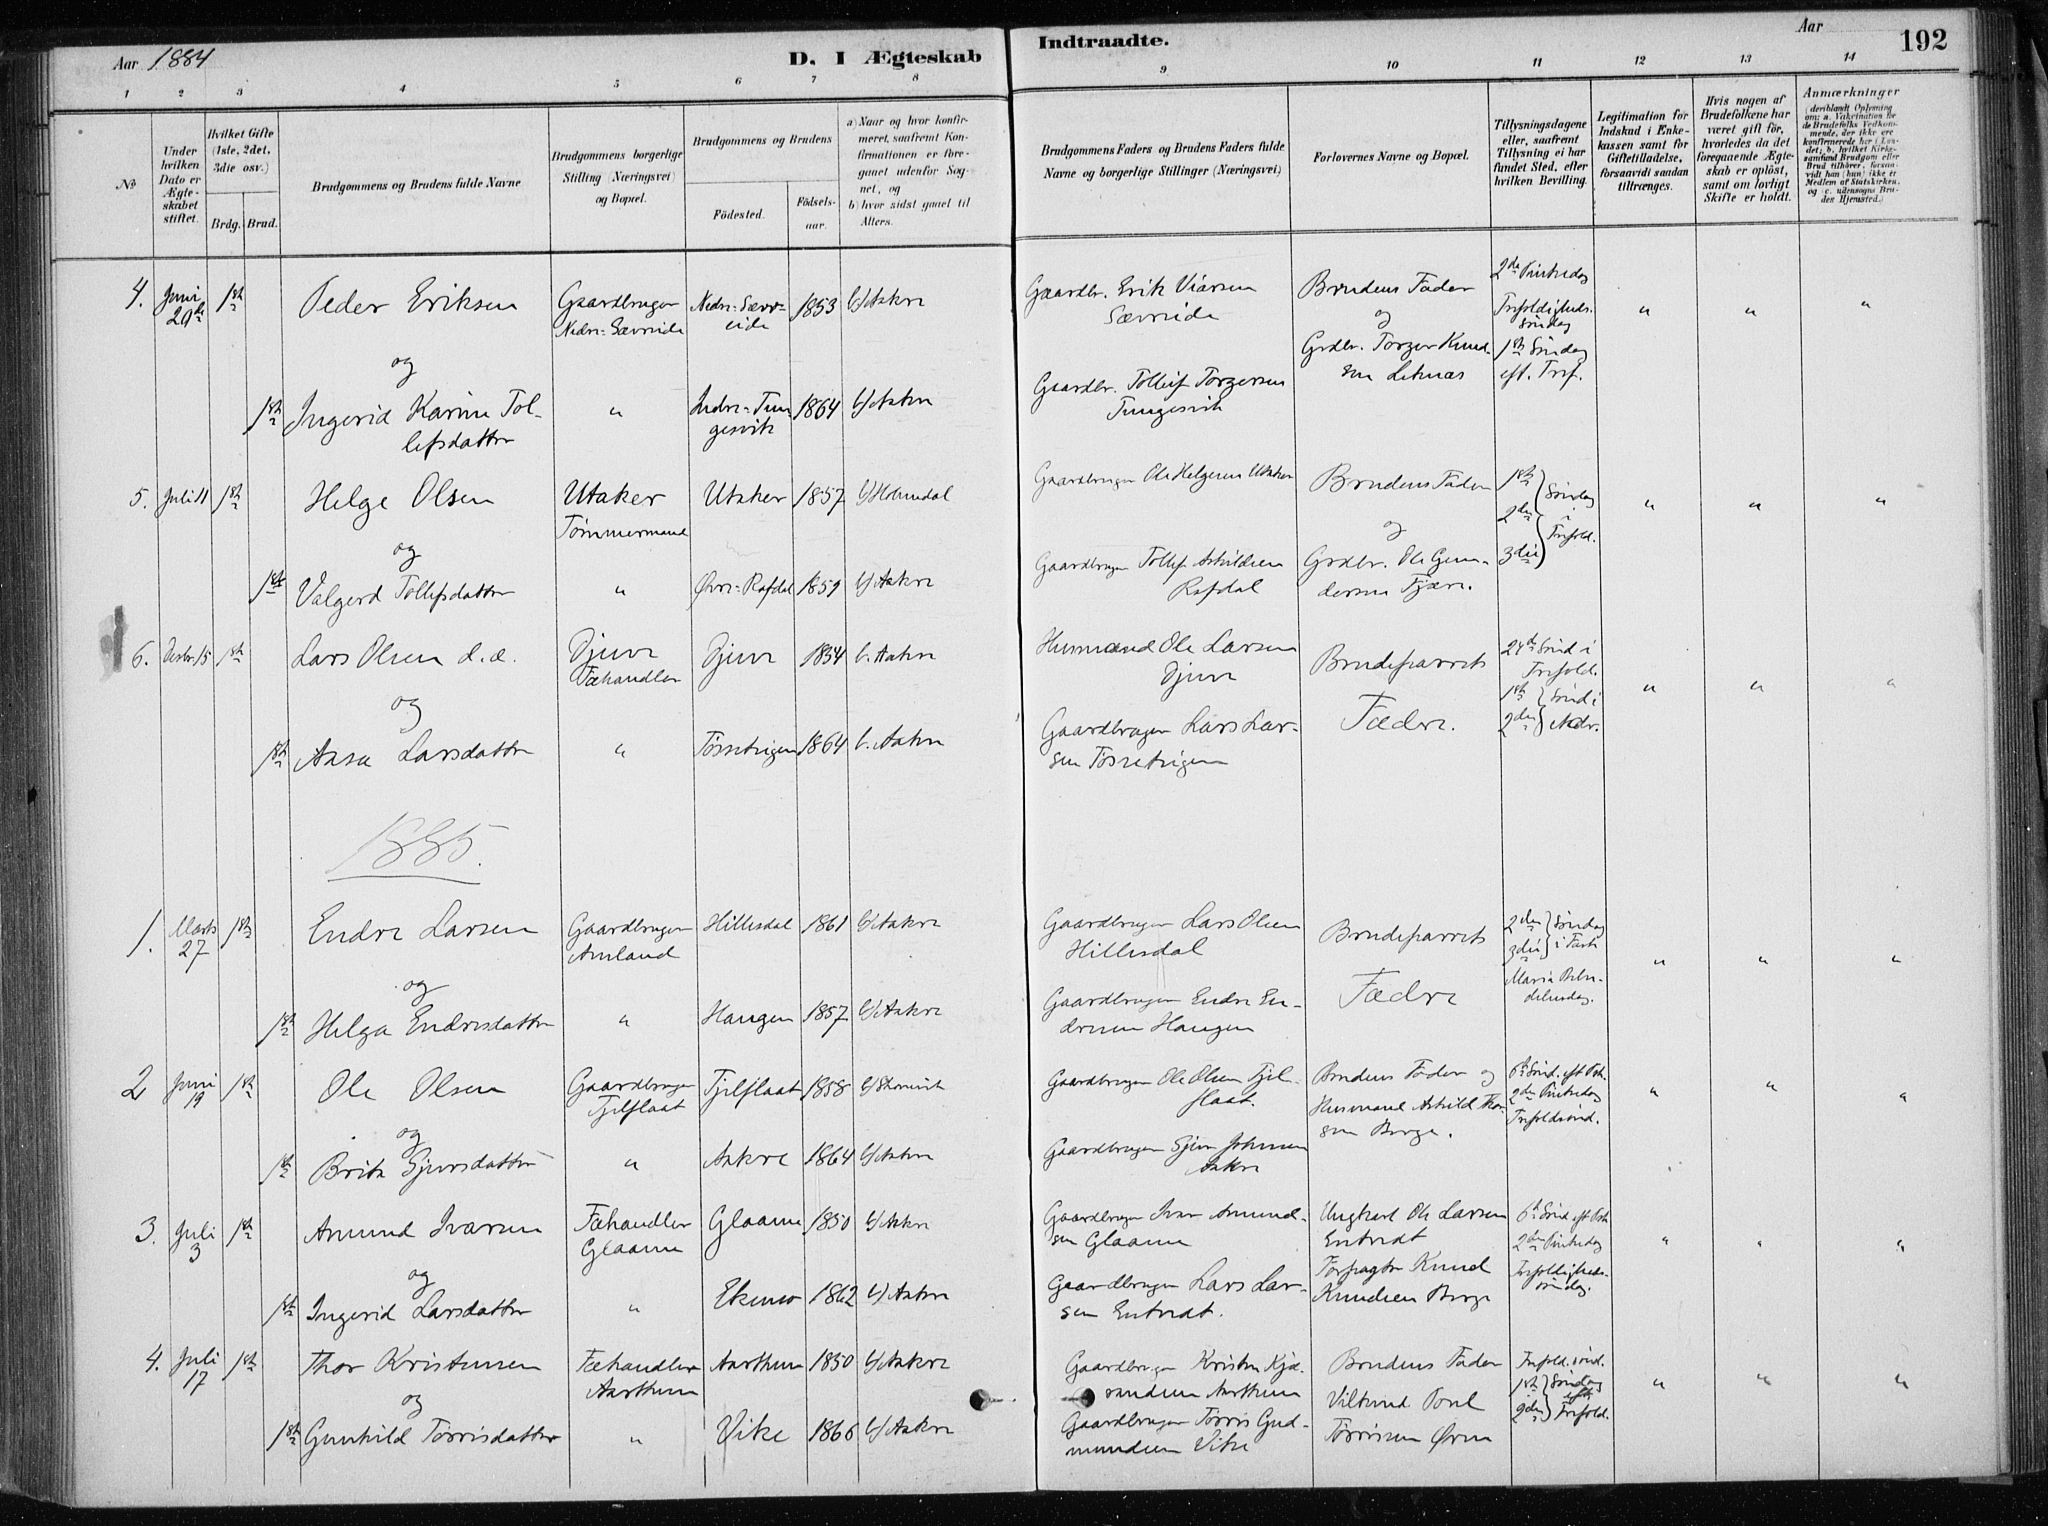 Aar 1884
D. I Ægteskab Indtraadte.
Aar
192
1 2 3 4 5 6 7 8 9 10 11 12 13 14
No
Under hvilken Dato er Ægteskabet stiftet.
Hvilket Gifte (1ste, 2det, 3die osv.)
Brdg. Brud.
Brudgommens og Brudens fulde Navne
Brudgommens borgerlige Stilling (Næringsvei) og Bopæl.
Brudgommens og Brudens
Fødested.
Fødselsaar.
a) Naar og hvor konfirmeret, saafremt Konfirmationen er foregaaet udenfor Sognet, og
b) hvor sidst gaaet til Alters.
Brudgommens Faders og Brudens Faders fulde Navne og borgerlige Stillinger (Næringsvei)
Forlovernes Navne og Bopæl.
Tillysningsdagene eller, saafremt Tillysning ei har fundet Sted, efter hvilken Bevilling.
Legitimation for Indskud i Enkekassen samt for Giftetilladelse, forsaavidt saadan tiltrænges.
Hvis nogen af Brudefolkene har været gift før, hvorledes da det foregaaende Ægteskab er opløst, samt om lovligt Skifte er holdt.
Anmærkninger (deriblandt Oplysning om: a. Vakcination for de Brudefolks Vedkommende, der ikke ere konfirmerede her i Landet; b. hvilket Kirkesamfund Brudgom eller Brud tilhører, forsaavidt han (hun) ikke er Medlem af Statskirken, og c. udensogns Brudes Hjemsted.)
4. Juni 29de 1ste Peder Eriksen Gaardbruger Nedre-Sævreide Nedre-Sævreide 1853 b/ Aakre Gaardbr. Erik Viarsen Sævreide Brudens Fader og Grdbr. Torger Knudsen Leknæs 2den Pintsedag Trefoldigheds-söndag 1ste Söndag eft. Tref. " " "
og
1ste Ingerid Karine Tollefsdatter " Indre-Tungesvik 1864 b/ Aakre Gaardbr. Tollef Torgersen Tungesvik
5. Juli 11 1ste Helge Olsen Utaker Tømmermand Utaker 1857 b/ Holmedal Gaardbruger Ole Helgesen Utaker Brudens Fader og Grdbr. Ole Gundersen Fjære. 1ste 2den 3die Söndag i Trefold. " " "
og
1ste Valgerd Tollefsdatter " Øvre-Rafdal 1859 b/ Aakre Gaardbruger Tollef Askildsen Rafdal
6. Decbr. 15 1ste Lars Olsen d.æ. Djuve Fæhandler Djuve 1854 b. Aakre Husmand Ole Larsen Djuve Brudeparrets Fædre. 24de Sönd i Trefold. 1ste 2den Sönd i Adv. " " "
og
1ste Aasa Larsdatter " 1864 b. Aakre Gaardbruger Lars Larsen
1885.
1. Marts 27 1ste Endre Larsen Gaardbruger Amland Hillesdal 1861 b/ Aakre Gaardbruger Lars Olsen Hillesdal Brudeparrets Fædre 2den 3die Söndag i Faste Maria Bebudelsesdag. " " "
og
1ste Helga Endresdatter " Haugen 1857 b/ Aakre Gaardbruger Endre Endresen Haugen
2 Juni 19 1ste Ole Olsen Gaardbruger Fjelflaat Fjelflaat 1858 b/ Gaardbruger Ole Olsen Fjelflaat. Brudens Fader og Husmand Askild Thorsen Borge. 6te Sönd. eft Psk. 2den Pintsedag Trefoldsönd. " " "
og
1ste Brita Sjursdatter " Aakre 1864 b/ Aakre Gaardbruger Sjur Johnsen Aakre
3. Juli 3 1ste Amund Ivarsen Fæhandler Glaame Glaame 1850 b/ Aakre Gaardbruger Ivar Amundsen Glaame Ungkarl Ole Larsen Entvedt Forpagter Knud Knudsen Borge 6te Sönd eft Psk 2den Pintsedag Trefoldigheds-söndag. " " "
og
1ste Ingerid Larsdatter " Ekemo 1862 b/ Aakre Gaardbruger Lars Larsen Entvedt.
4. Juli 17 1ste Thor Kristensen Fæhandler Aarthun Aarthun 1850 b/ Aakre Gaardbruger Kristen Aarthun Brudens Fader Poul Tørrisen Trefold. sönd. 1ste 2den Söndag eft. Trefold. " " "
og
1ste Gunhild Tørrisdatter " Vike 1866 b/ Aakre Gaardbruger Tørris Gudmundsen Vike